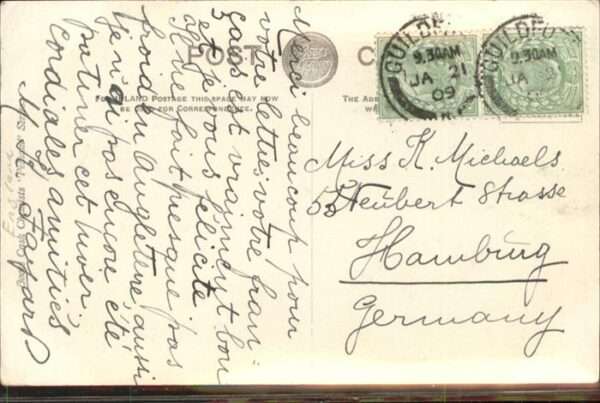 POST
FOR INLAND POSTAGE THIS SPACE MAY NOW
BE USED FOR CORRESPONDENCE.
THE AD
GUILDFO
9.30AM
JA 21
09
GUILDFO
9.30AM
JA 2
Merci beaucoup pour
votre lettre, votre fran-
çais est vraiment bon
et je vous félicite
Il ne fait presque pas
froid en angleterre, aussi
je n'ai pas encore été
patiner cet hiver
Cordiales amitiés
M.
Miss K. Michaels
Heubert Strasse
Hamburg
Germany
England